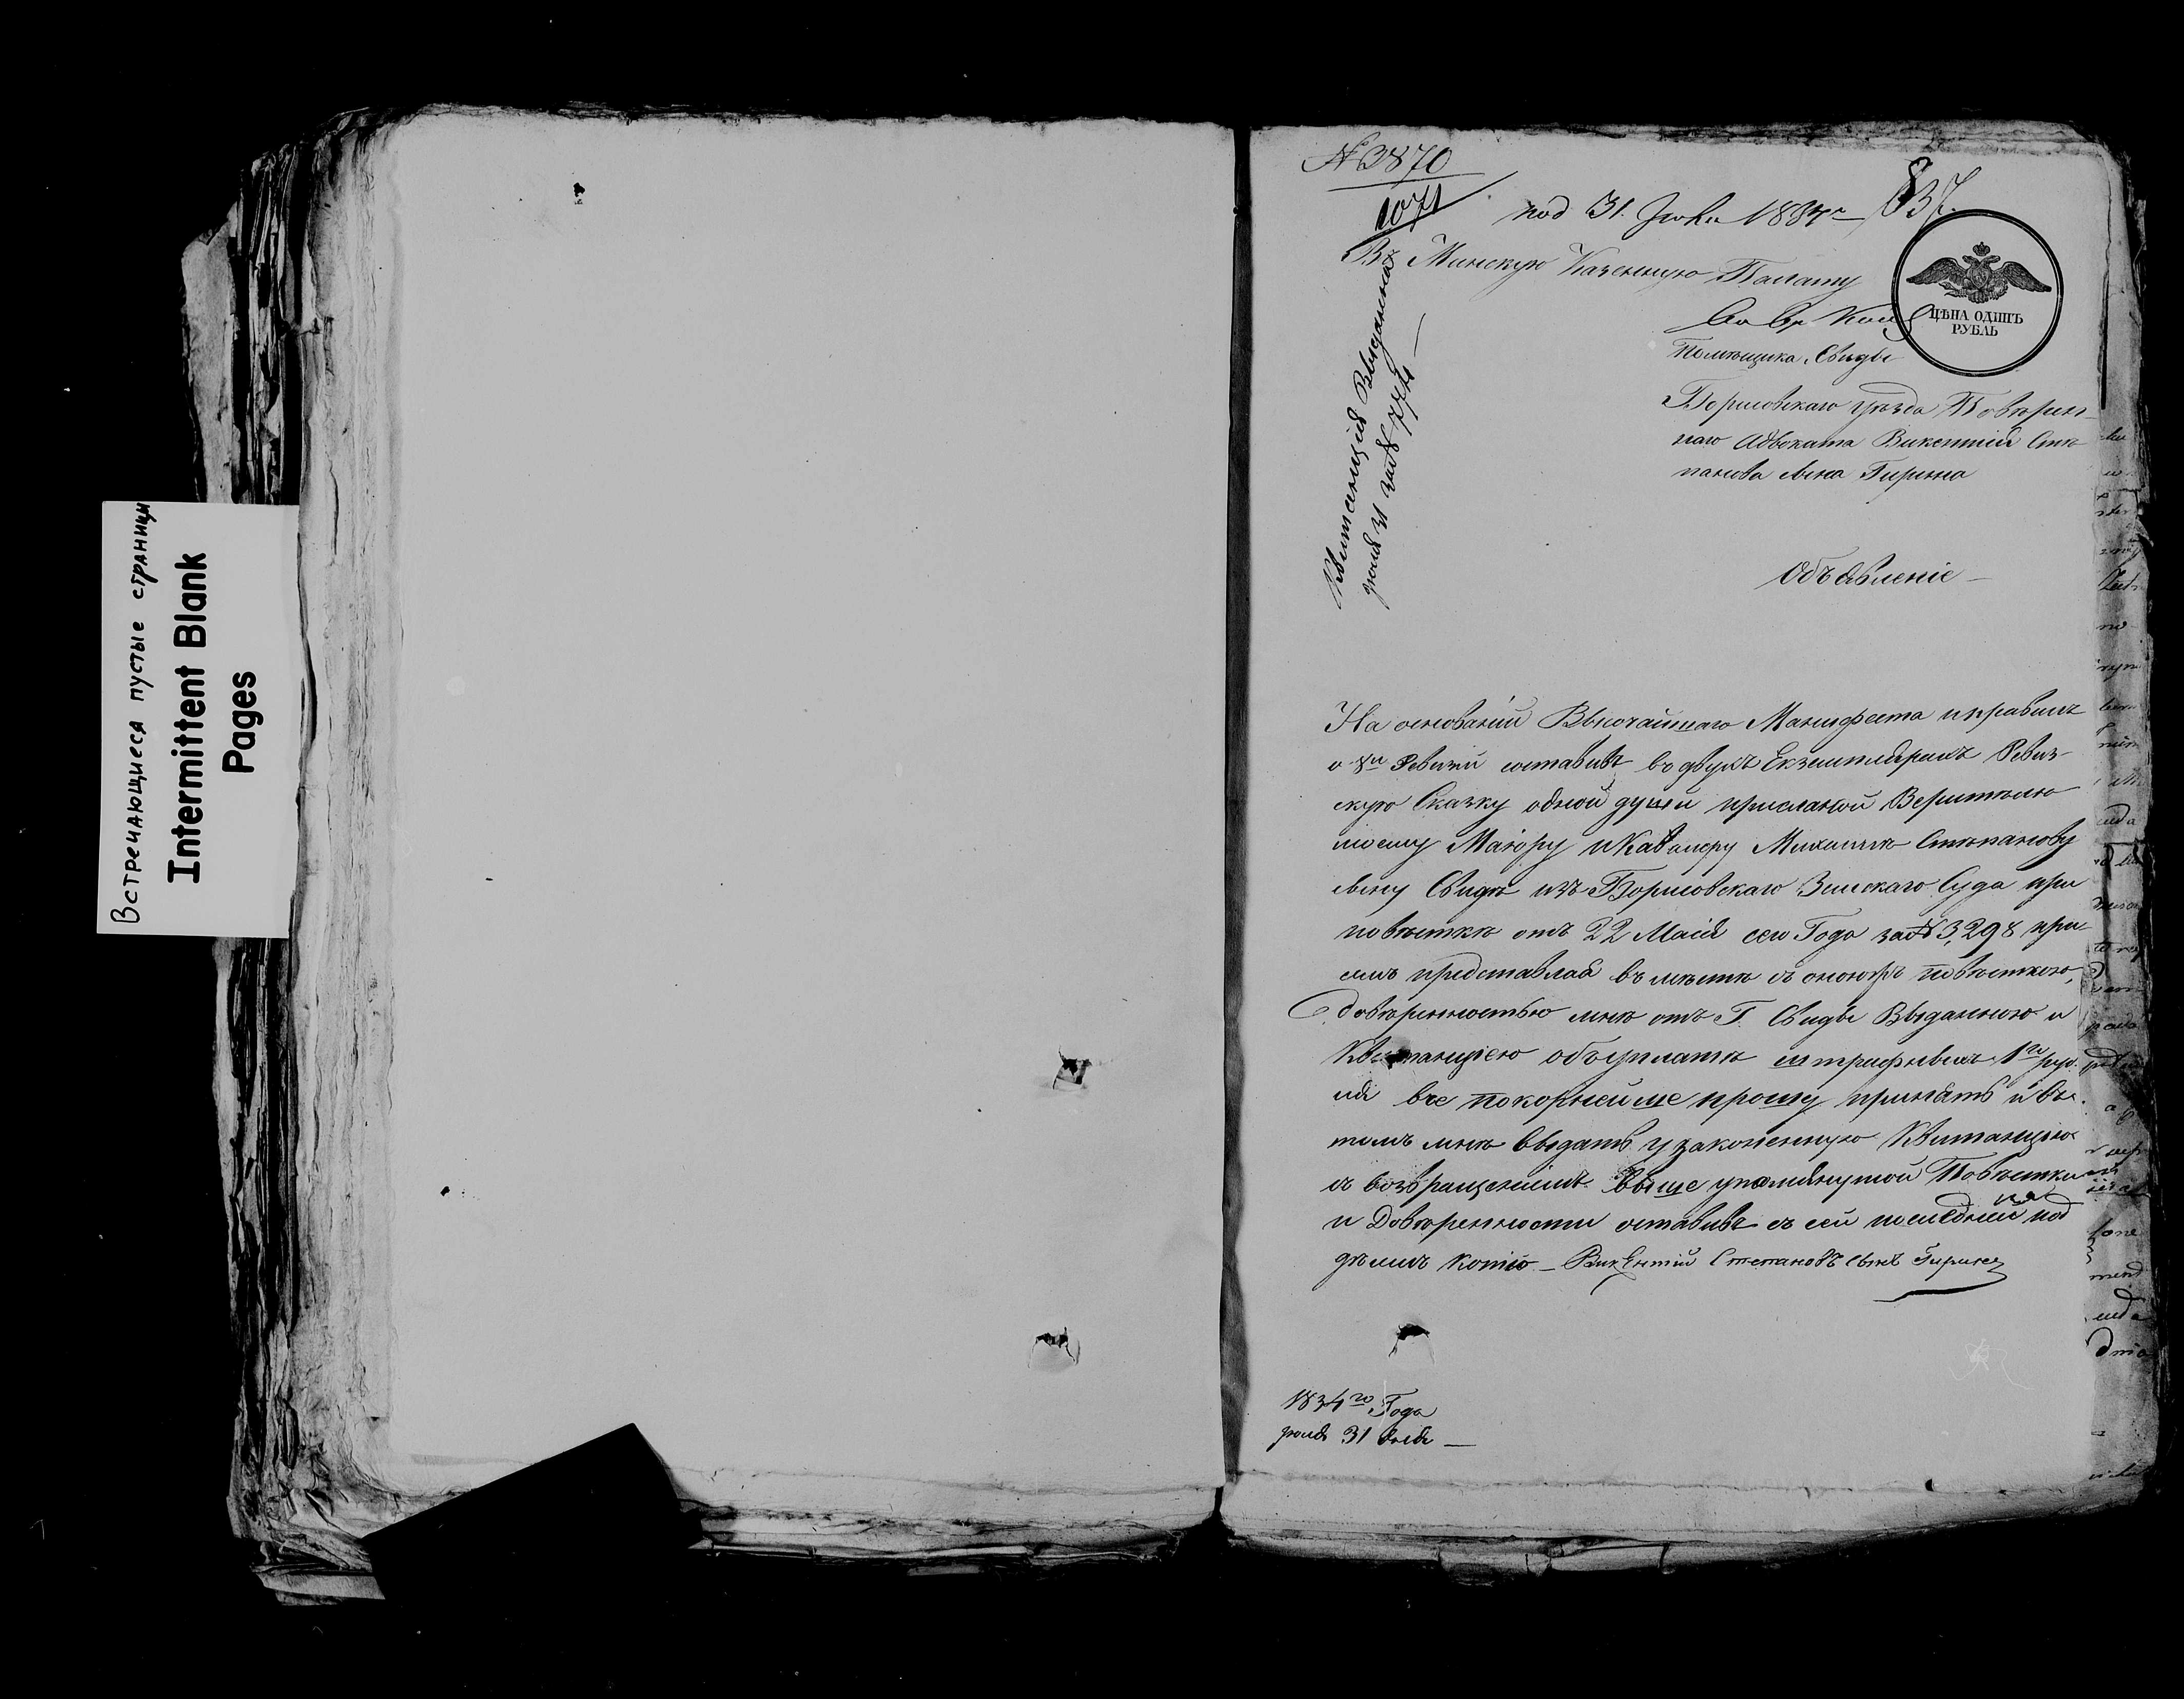 Встречающиеся пустые страницы
Intermittent Blank
Pages
№ 3870
1071
под 31. Июля 1834 г.
837.
Въ Минскую Казенную Палату
ЦѢНА ОДИНЪ
РУБЛЬ
Помѣщика Свиды
Борисовскаго уѣзда Повѣрен-
наго Адвоката Викентiй Сте
панова сына Гирина
Квитанцiя Выданная
июля 31 за № 7774
Объявленiе
На основанiи Высочайшаго Манифеста и правилъ
о 8й Ревизiи составивъ въ двухъ Екземплярахъ Ревиз-
скую Сказку одной души присланой Верителю
моему Маiору и Кавалеру Михаилѣ Степанову
сыну Свидѣ изъ Борисовскаго Земскаго Суда при
повѣсткѣ отъ 22 Маiя сего Года за № 3,298 при
семъ представляя въ мѣстѣ съ оною повѣсткою,
довѣренностью мнѣ отъ Г. Свиды Выданною и
Квитанцiею объ уплатѣ штрафныхъ 1го руб-
ля все покорнейше прошу принять и въ
томъ мнѣ выдать узаконенную Квитанцiю
съ возвращенiемъ выше упомянутой Повѣстки
и Доверенности оставивъ съ сей последней под
дѣлимъ копiю Викентiй Степановъ сынъ Гирин
1834го Года
июля 31 дня